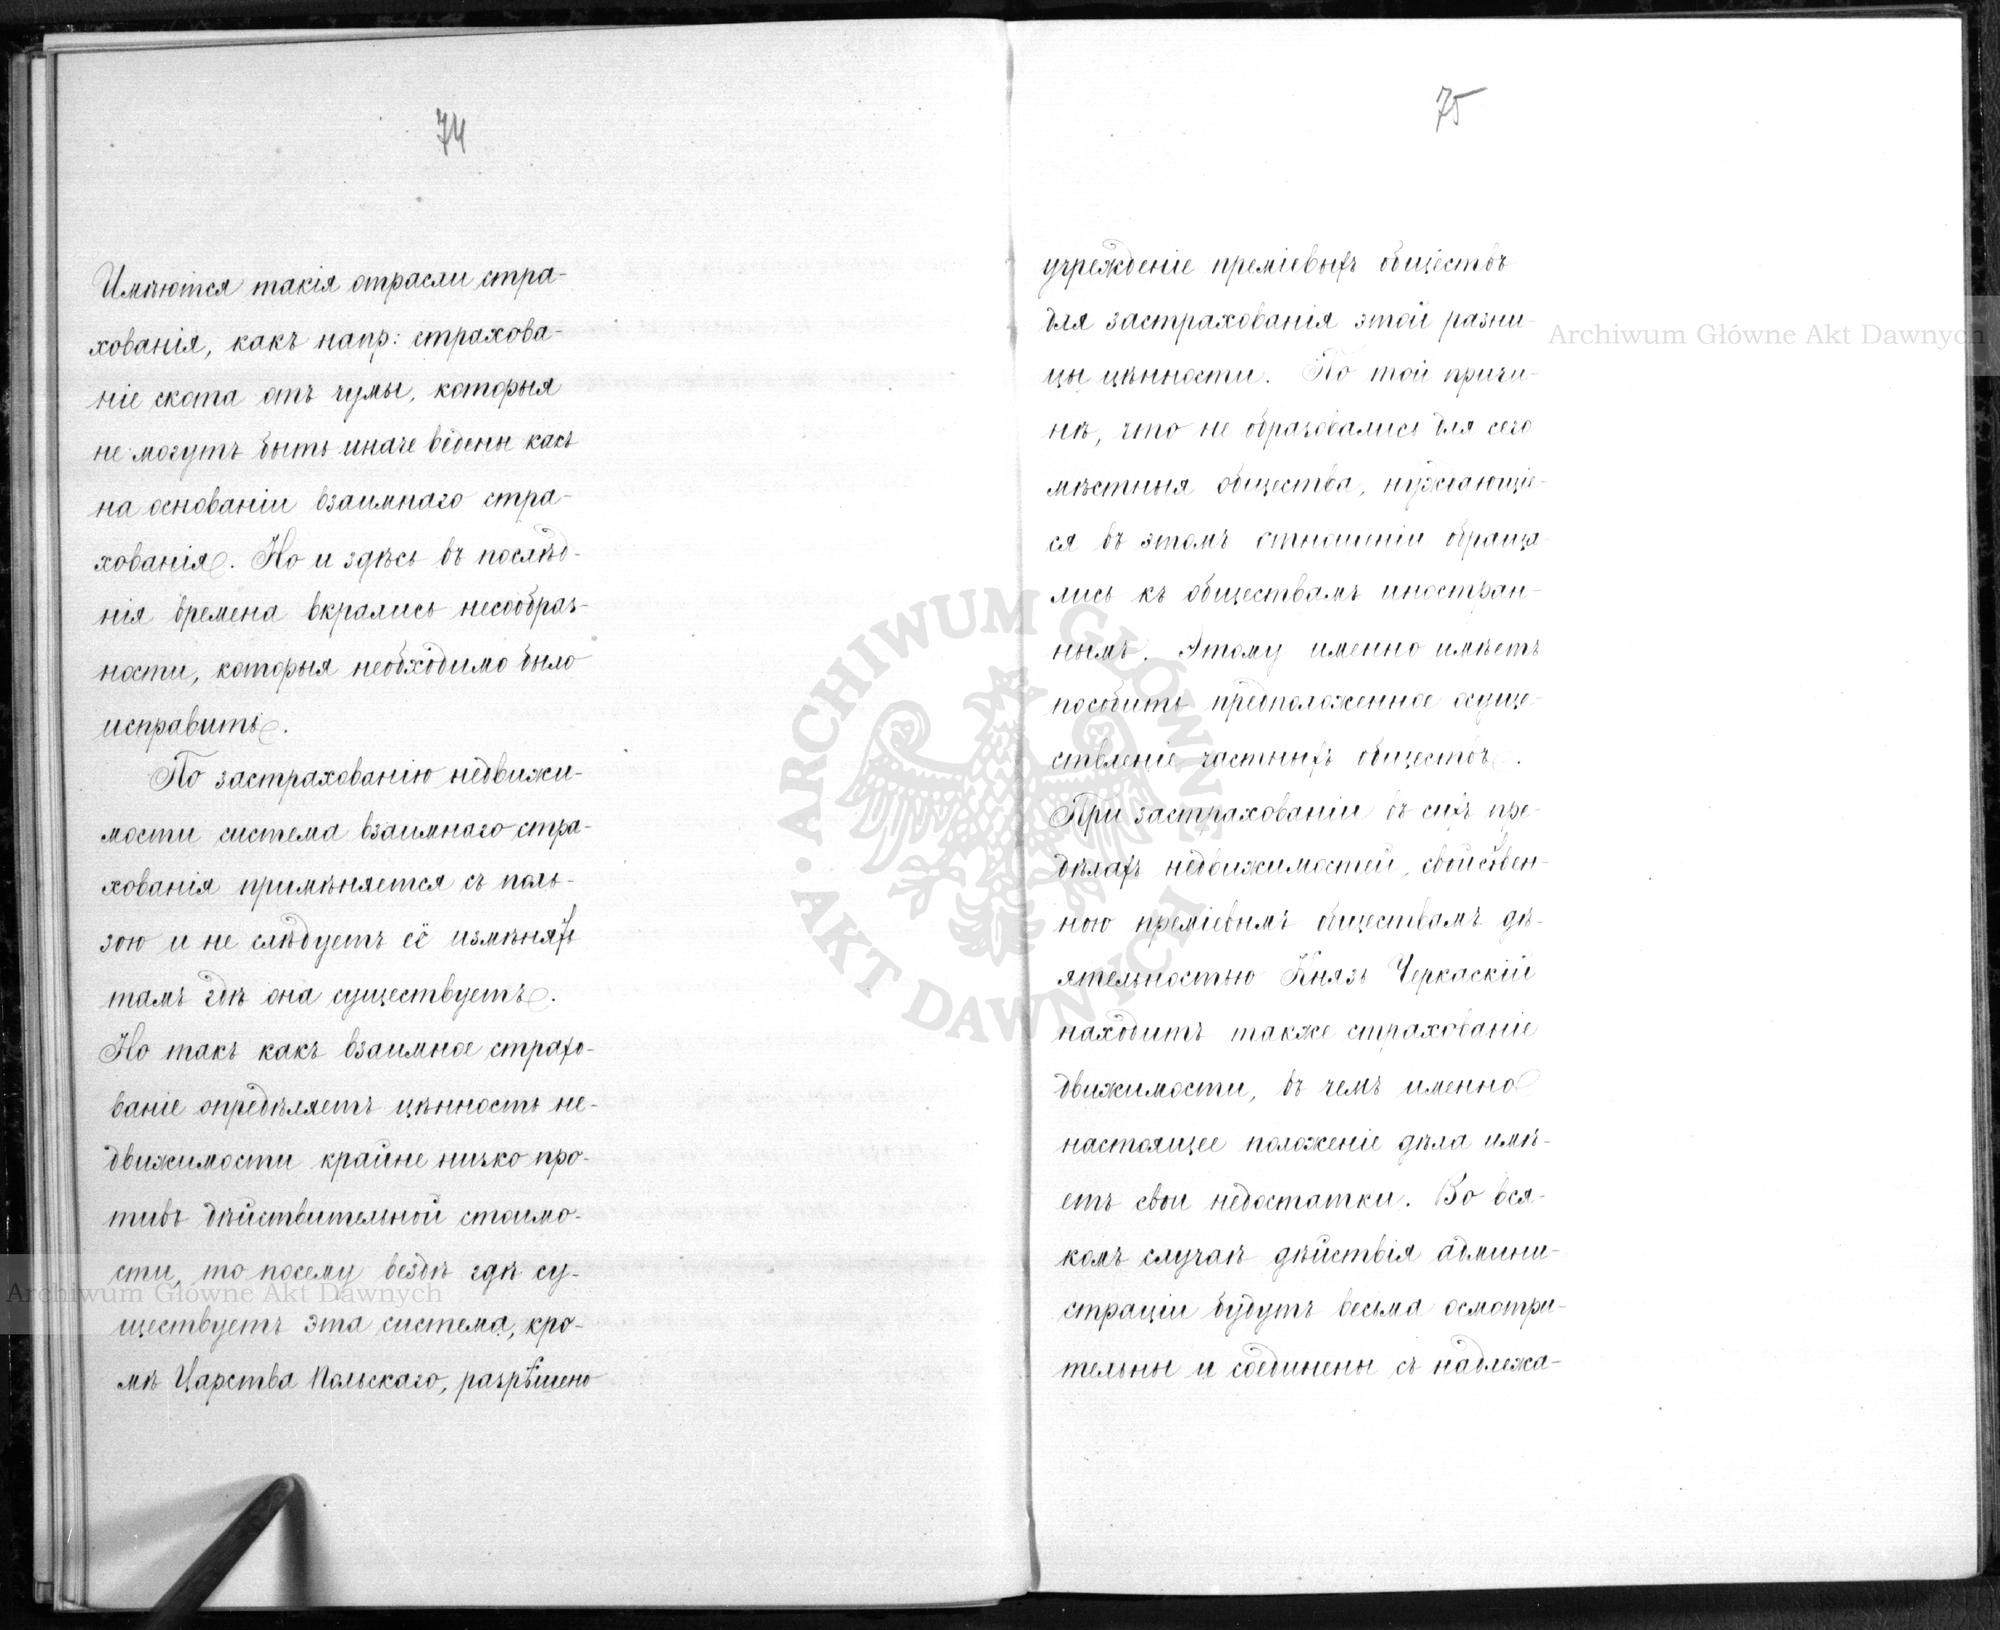 74
Имѣются такія отрасли стра-
хованія, какъ напр: страхова-
ніе скота отъ чумы, которыя
не могутъ быть иначе ведены какъ
на основаніи взаимнаго стра-
хованія. Но и здѣсь въ послѣд-
нія времена вкрались несообраз-
ности, которыя необходимо было
исправить.
По застрахованію недвижи-
мости система взаимнаго стра-
хованія примѣняется съ поль-
зою и не слѣдуетъ её измѣнять
тамъ гдѣ она существуетъ.
Но такъ какъ взаимное страхо-
ваніе опредѣляетъ цѣнность не-
движимости крайне низко про-
тивъ дѣйствительной стоимо-
сти, то посему вездѣ гдѣ су-
ществуетъ эта система, кро-
мѣ Царства Польскаго, разрѣшено
75
учрежденіе преміевыхъ обществъ
для застрахованія этой разни-
цы цѣнности. По той причи-
нѣ, что не образовались для сего
мѣстныя общества, нуждающіе-
ся въ этомъ отношеніи обраща-
лись къ обществамъ иностран-
нымъ. Этому именно имѣетъ
пособить предположенное осуще-
ствленіе частныхъ обществъ.
При застрахованіи въ сихъ пре-
дѣлахъ недвижимостей, свойствен-
ною преміевымъ обществамъ дѣ-
ятельностью Князь Черкаскій
находитъ также страхованіе
движимости, въ чемъ именно
настоящее положеніе дѣла имѣ-
етъ свои недостатки. Во вся-
комъ случаѣ дѣйствія админи-
страціи будутъ весьма осмотри-
тельны и соединены съ надлежа-
Archiwum Główne Akt Dawnych
Archiwum Główne Akt Dawnych
ARCHIWUM GŁÓWNE
AKT DAWNYCH